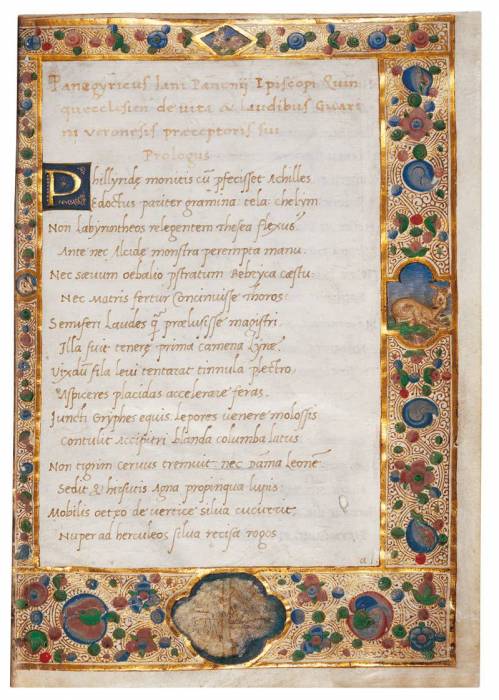 Panegyricus Iani Panonii Episcopi Quin
queecclesien de vita & laudibus Guari
ni veronesis præceptoris sui
Prologus
Phillyridę monitis cū pfecisset Achilles
Edoctus pariter gramina: tela: chelym
Non labyrintheos relegentem Thesea flexus
Ante nec Alcidę monstra perempta manu.
Nec sævum oebalio pstratum Bebryca cæstu
Nec Matris fertur Concinuisse thoros:
Semiferi Laudes q̃ prælusisse magistri.
Illa fuit tenerę prima camena Lyrę.
Vixdū fila levi tentarat tinnula plectro.
Aspiceres placidas accelerare feras.
Iuncti Gryphes equis lepores venere molossis
Contulit Accipitri blanda columba latus
Non tigrim Cervus tremuit nec Dama Leonē
Sedit & hirsutis Agna propinqua lupis
Mobilis oetęo de vertice silva cucurrit.
Nuper ad herculeos silva recisa rogos